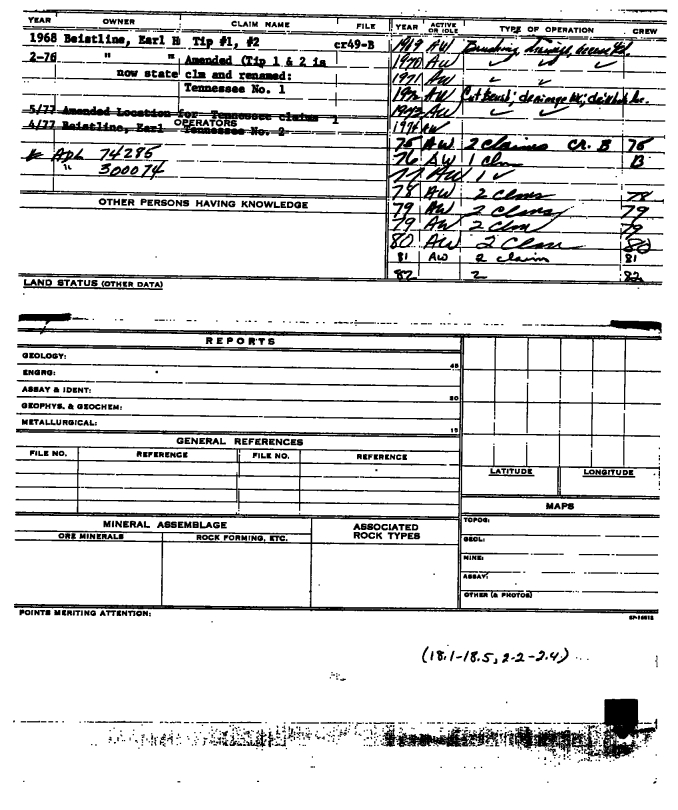 YEAR OWNER CLAIM NAME FILE
1968 Beistline, Earl H Tip #1, #2 cr49-B
2-76 " " Amended (Tip 1 & 2 is
now state clm and renamed:
Tennessee No. 1
5/77 Amended Location for Tennessee claims 1
OPERATORS
4/77 Beistline, Earl Tennessee No. 2
ADL 74285
" 300074
OTHER PERSONS HAVING KNOWLEDGE
LAND STATUS (OTHER DATA)
YEAR ACTIVE OR IDLE TYPE OF OPERATION CREW
1969 AW Brushing, drainage, access Rd.
1970 AW ✓ ✓ ✓
1971 AW ✓ ✓
1972 AW Cut Brush; drainage
1973 AW ✓ ✓
1974 AW
75 AW 2 claims CR. B 75
76 AW 1 clm B
77 AW 1 ✓
78 AW 2 Clms 78
79 AW 2 Clms 79
79 AW 2 Clm 79
80 AW 2 Clm 80
81 AW 2 claim 81
82 2 82
REPORTS
GEOLOGY:
ENGRG: 45
ASSAY & IDENT: 30
GEOPHYS. & GEOCHEM:
METALLURGICAL: 15
GENERAL REFERENCES
FILE NO. REFERENCE FILE NO. REFERENCE
LATITUDE LONGITUDE
MAPS
TOPOG:
GEOL:
MINE:
ASSAY:
OTHER (& PHOTOS)
MINERAL ASSEMBLAGE
ORE MINERALS ROCK FORMING, ETC.
ASSOCIATED
ROCK TYPES
POINTS MERITING ATTENTION:
(18.1-18.5, 2.2-2.4)